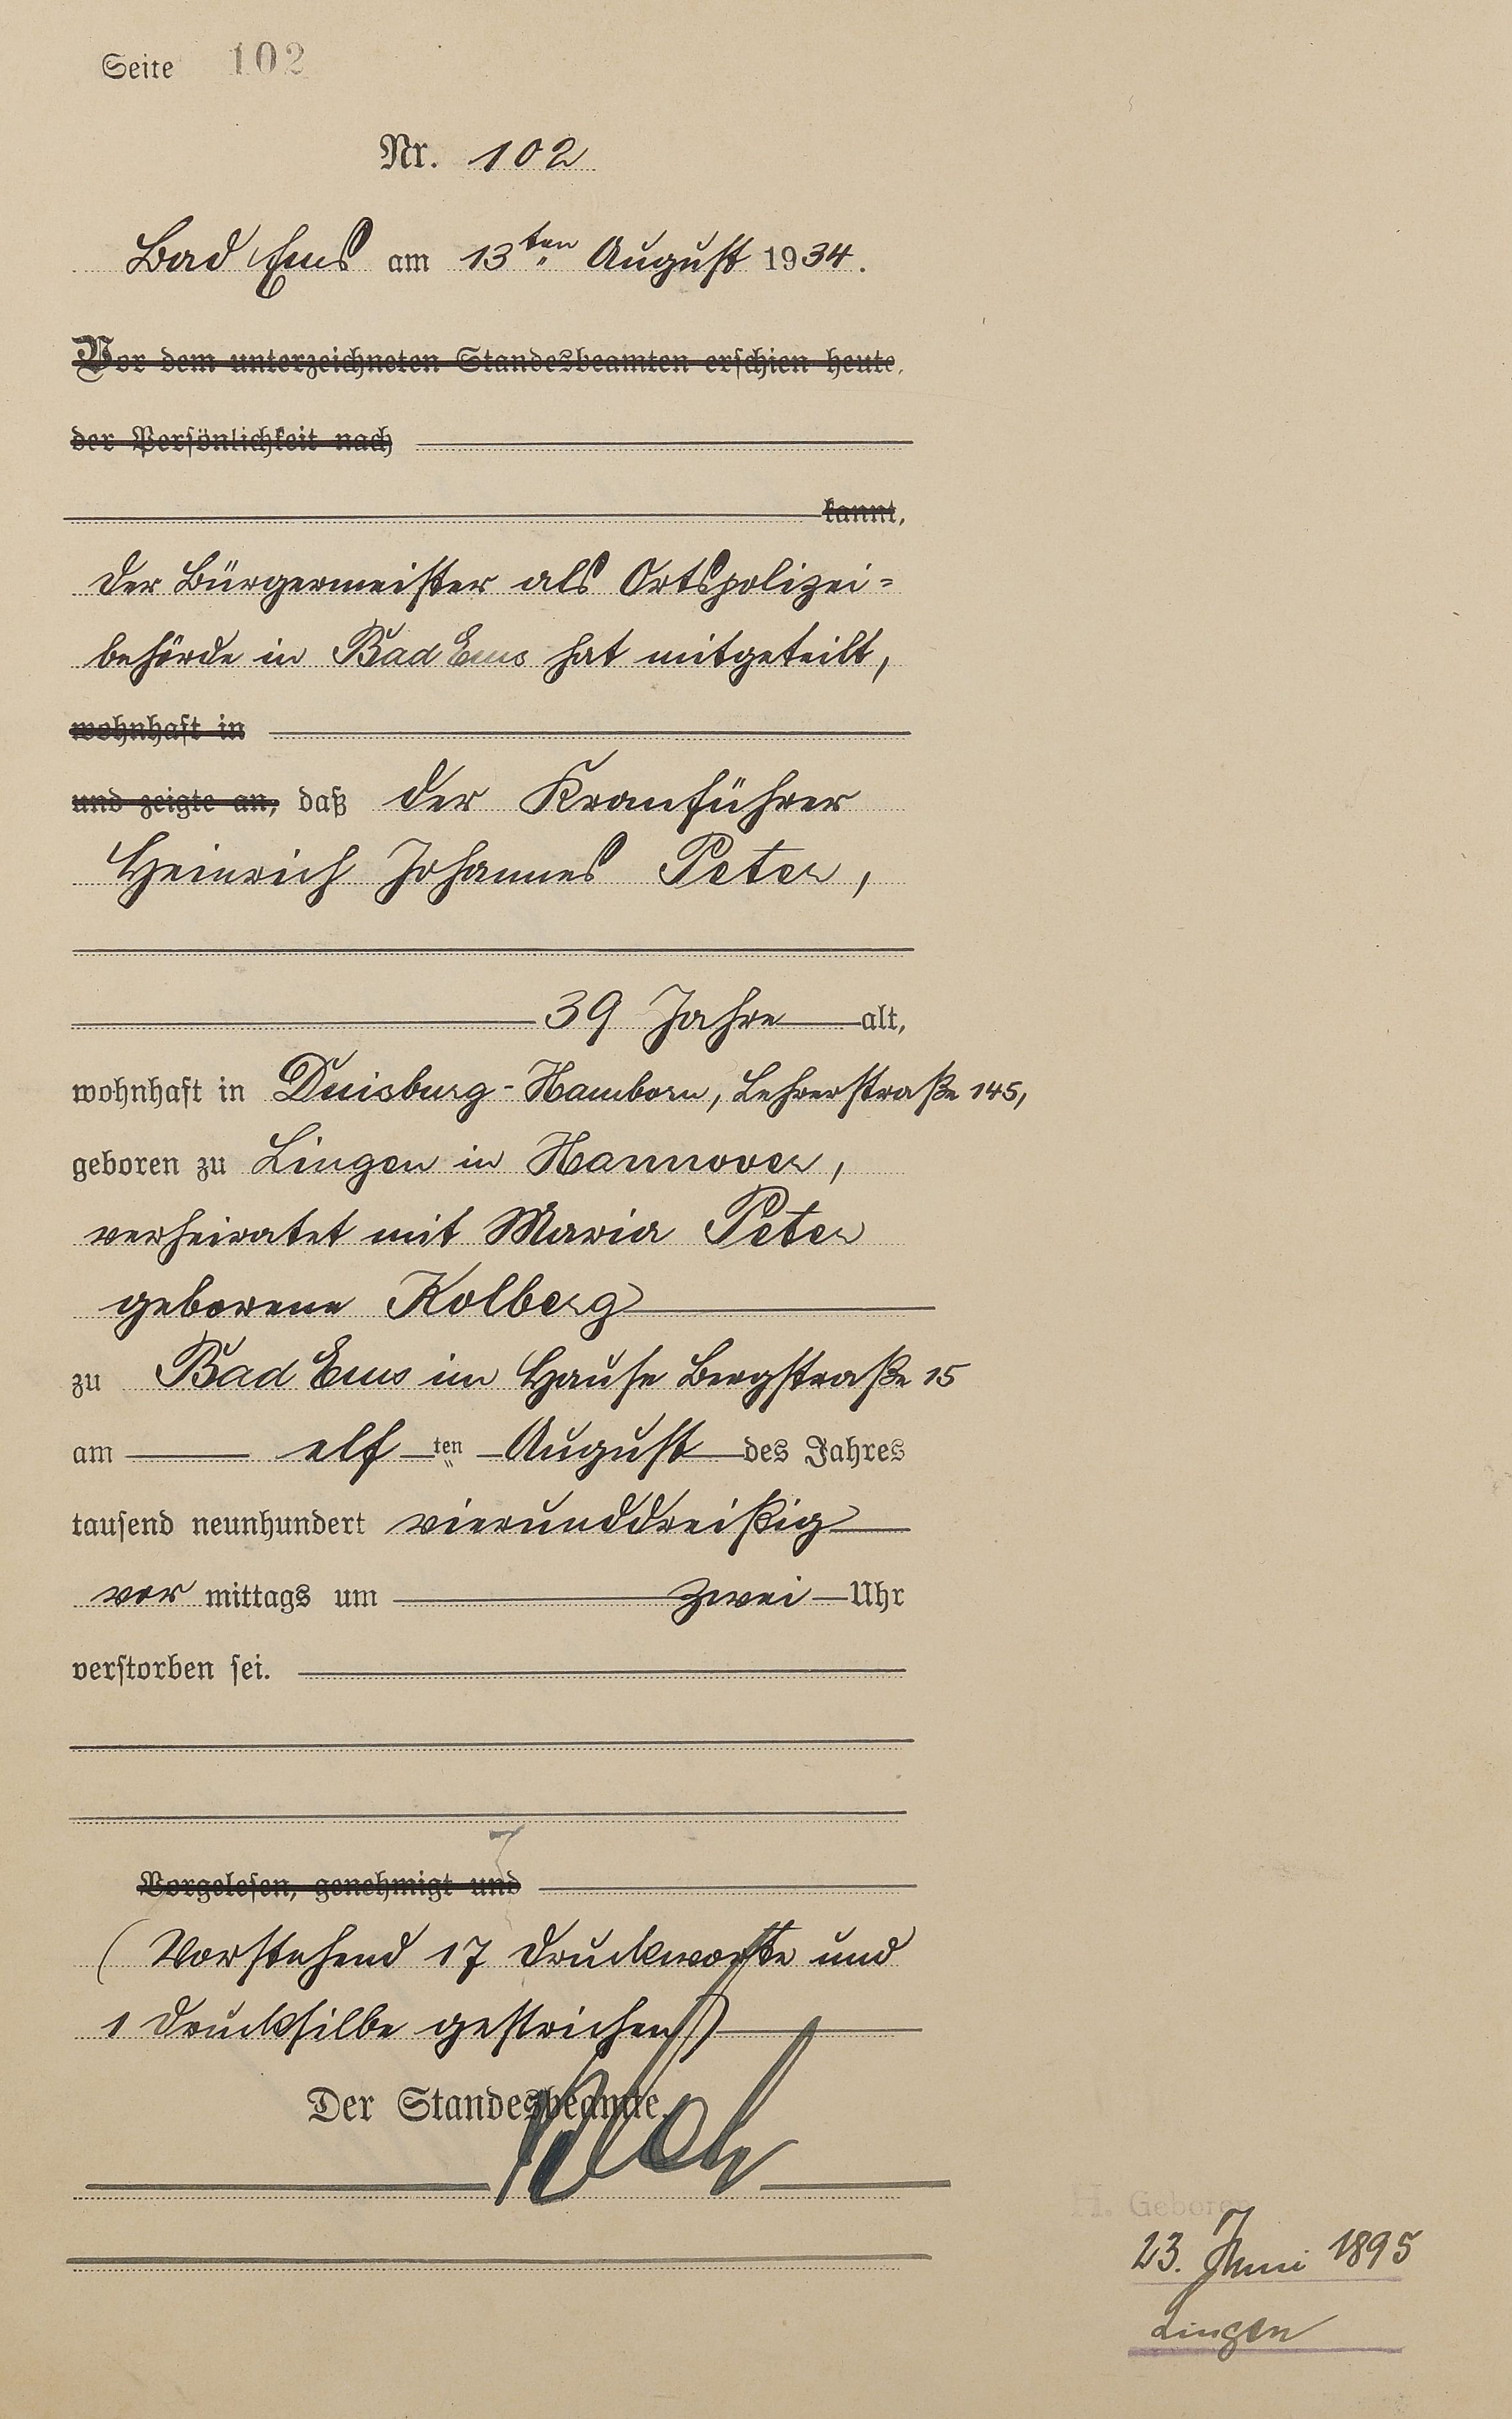 Seite 102
Nr. 102
Bad Ems am 13ten August 1934.
Vor dem unterzeichneten Standesbeamten erschien heute,
der Persönlichkeit nach
kannt,
der Bürgermeister als Ortspolizei=
behörde in Bad Ems hat mitgeteilt,
wohnhaft in
und zeigte an, daß der Kranführer
Heinrich Johannes Peter,
39 Jahre alt,
wohnhaft in Duisburg-Hamborn, Lehrerstraße 145,
geboren zu Lingen in Hannover,
verheiratet mit Maria Peter
geborene Kolberg
zu Bad Ems im Hause Bergstraße 15
am elf ten August des Jahres
tausend neunhundert vierunddreißig
vor mittags um zwei Uhr
verstorben sei.
Vorgelesen, genehmigt und
(Vorstehend 17 Druckworte und
1 Drucksilbe gestrichen)
Der Standesbeamte.
H. Geboren
23. Juni 1895
Lingen